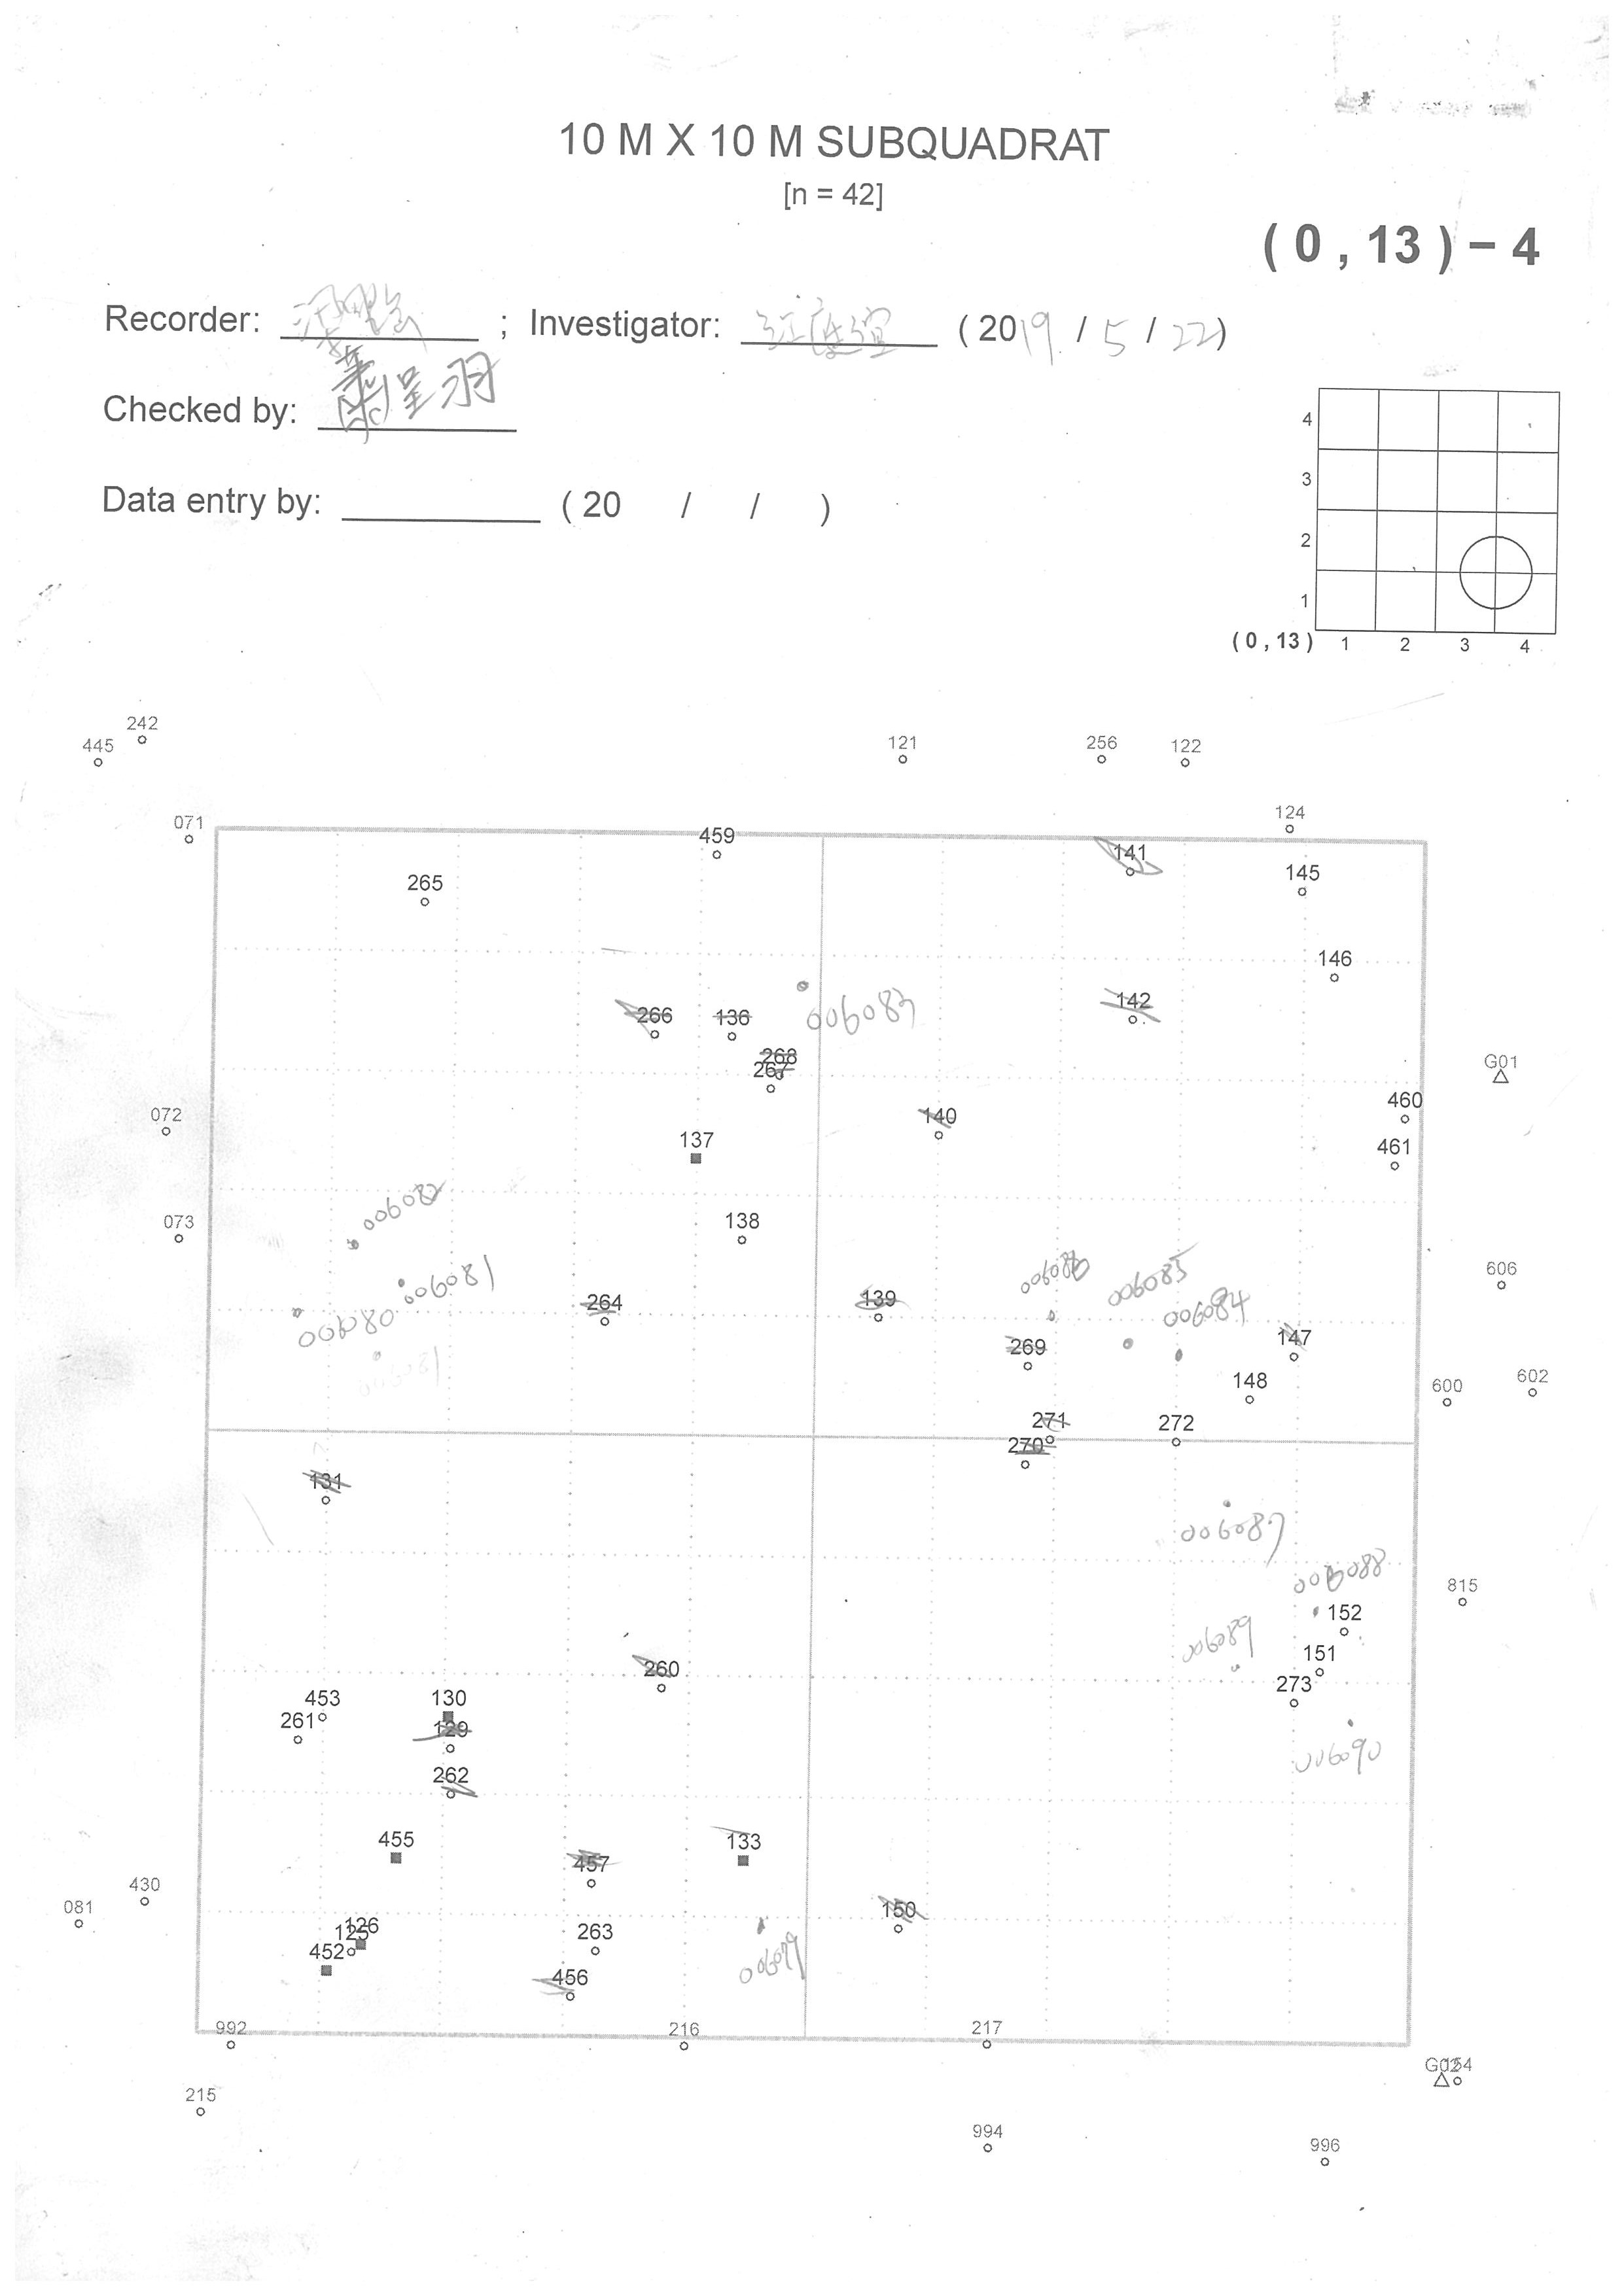 10 M X 10 M SUBQUADRAT
[n = 42]
( 0 , 13 ) - 4
Recorder: ; Investigator: ( 2019 / 5 / 22 )
Checked by: 葉呈羽
Data entry by: ( 20 / / )
4
3
2
1
( 0 , 13 ) 1 2 3 4
242
445
121 256 122
124
071
459
141
265
145
146
006083
266 136
142
268
267
G01
460
072
140
137
461
006082
073
138
006081
006086 006085
606
264
139
006084
006080
269
147
148
600 602
271 272
270
131
006087
006088
815
152
006089
151
260
453 130
273
261
129
006090
262
455
133
457
430
081
150
126
125
263
452
006079
456
992
216
217
G02 154
215
994
996